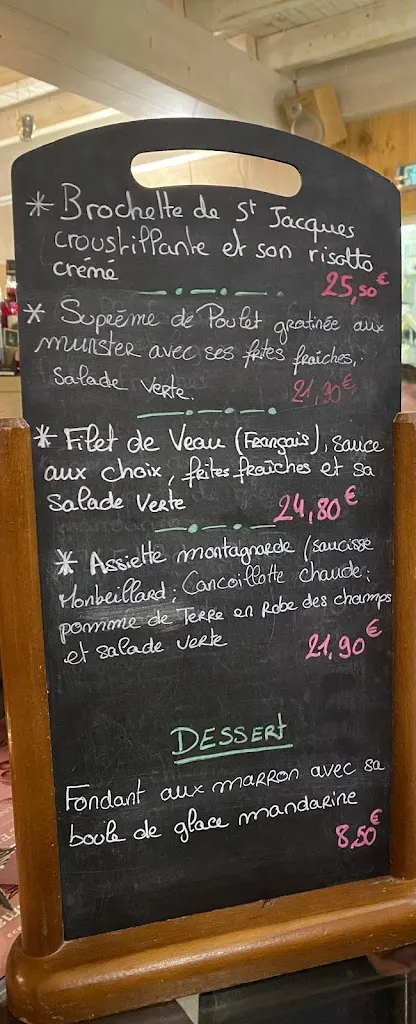 * Brochette de St Jacques
croustillante et son risotto
crémé 25,50€
* Suprême de Poulet gratinée aux
munster avec ses frites fraiches,
Salade verte. 21,90€
* Filet de Veau (Français), sauce
aux choix, frites fraîches et sa
Salade Verte 24,80€
* Assiette montagnarde (saucisse
Monbeillard; Cancoillotte chaude;
pomme de Terre en Robe des champs
et salade verte 21,90€
DESSERT
Fondant aux marron avec sa
boule de glace mandarine
8,50€